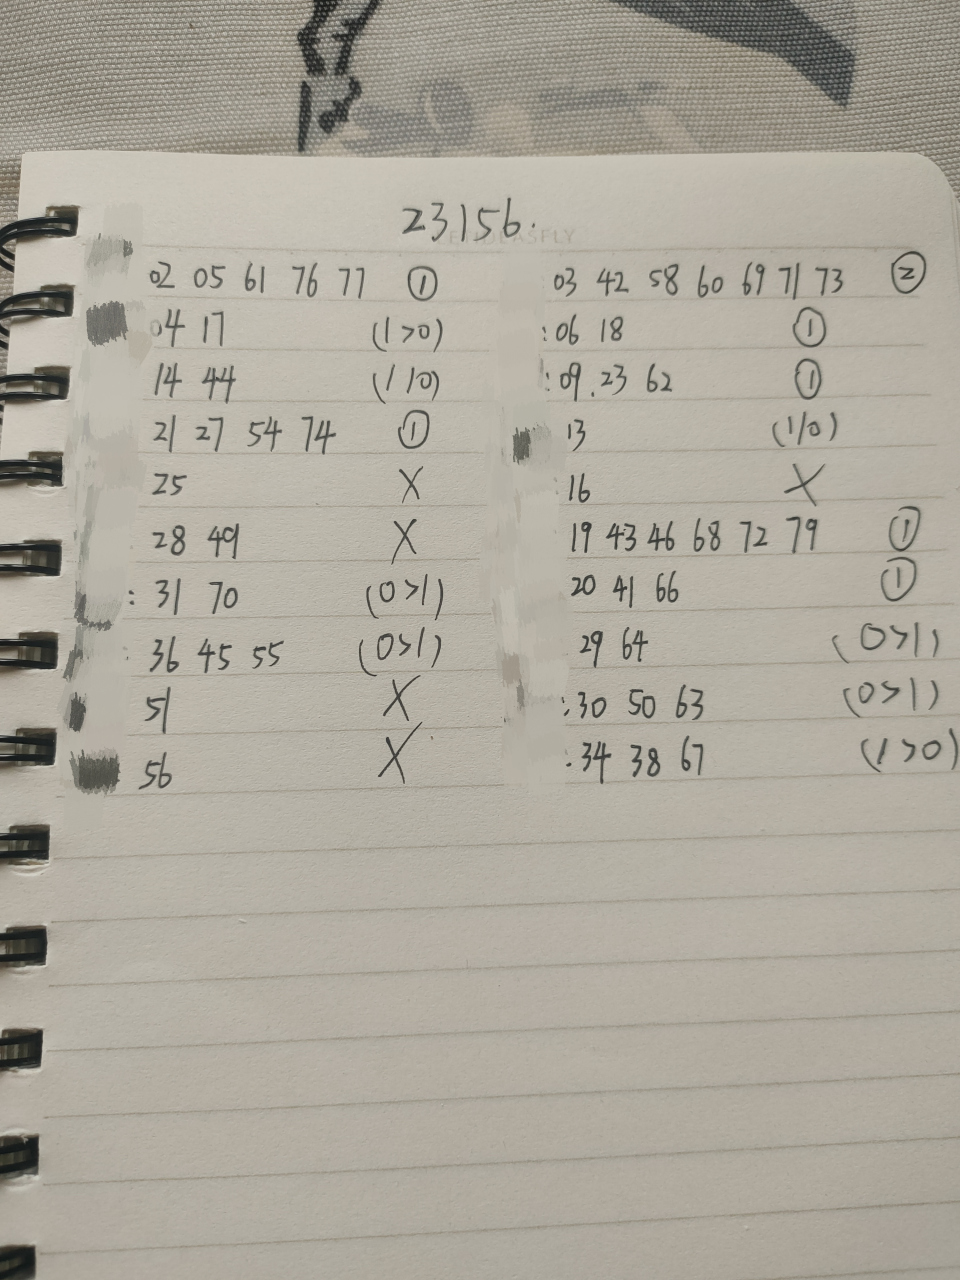 23156.
02 05 61 76 77 ①
04 17 (1>0)
14 44 (1/0)
21 27 54 74 ①
25 X
28 49 X
: 31 70 (0>1)
36 45 55 (0>1)
51 X
56 X
03 42 58 60 69 71 73 ②
:06 18 ①
:09.23 62 ①
13 (1/0)
16 X
19 43 46 68 72 79 ①
20 41 66 ①
29 64 (0>1)
:30 50 63 (0>1)
:34 38 67 (1>0)